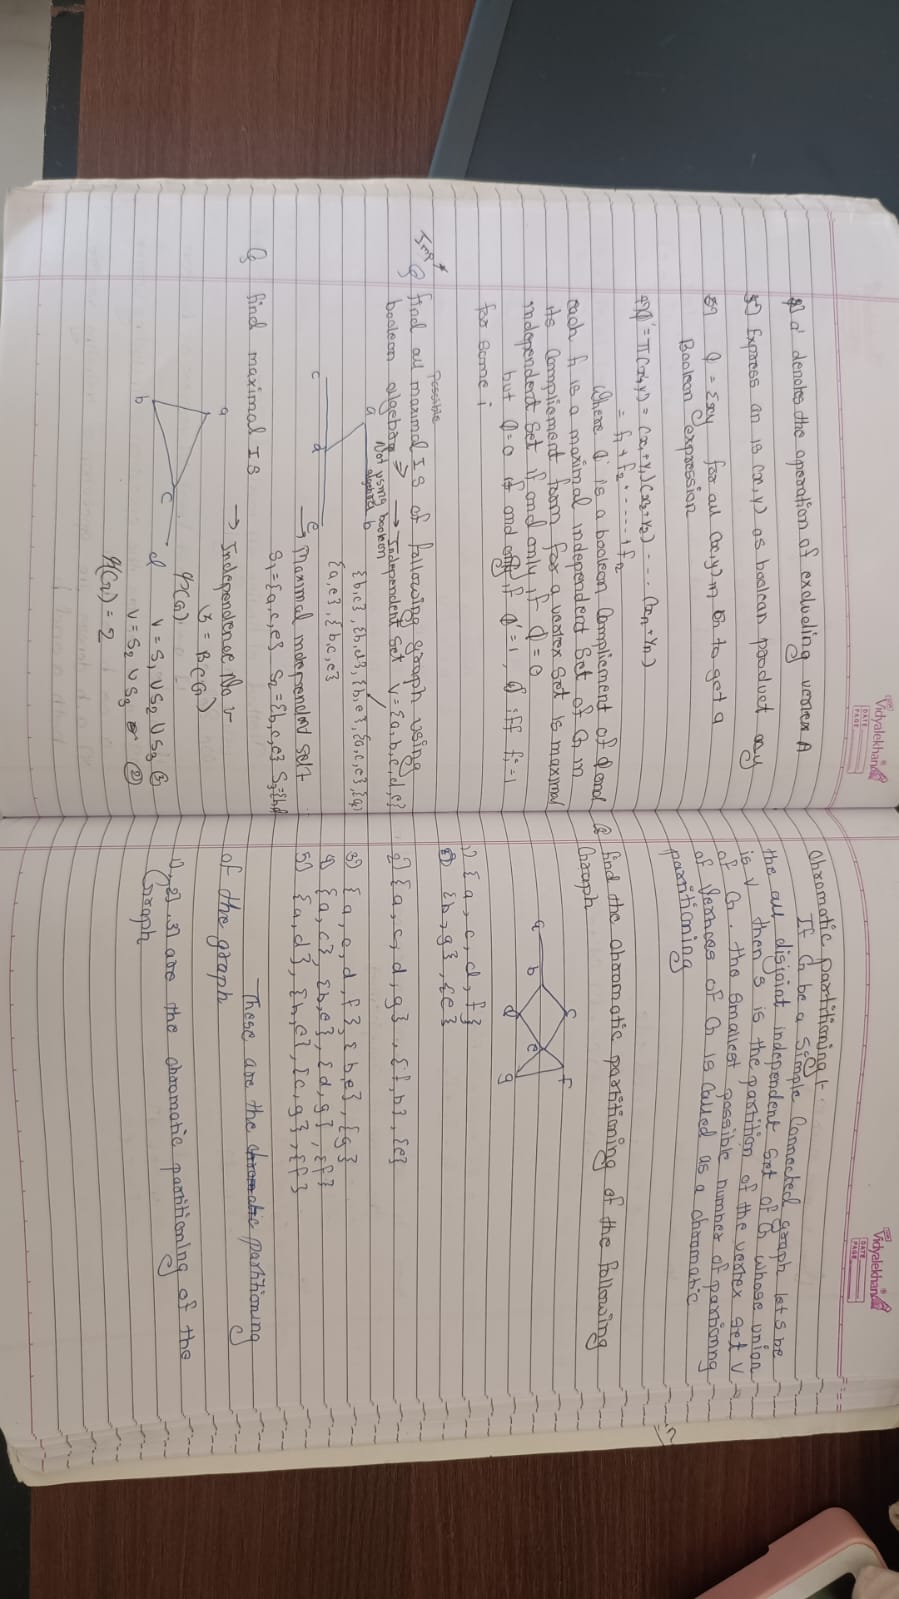 Vidyalekhan
DATE
PAGE
a' denotes the operation of excluding vertex A
Express an is (x,y) as boolean product xy
φ = Σxy for all (x,y) in G to get a
Boolean expression
φ' = π(x'+y') = (x₁+y₁)(x₂+y₂) ---- (xn+yn)
= f₁+f₂+-----+fn
Where φ' is a boolean Compliement of φ and
each fi is a maximal independent Set of G in
its Compliement form for a vertex set is maximal
independent set if and only if φ=0
but φ=0 if and only if φ'=1, iff fi=1
for some i
Imp*
Possible
Q find all maximal IS of following graph using
boolean algebra → Independent Set V={a,b,c,d,e}
Not using boolean
algebra
a b
{b,c}, {b,d}, {b,e}, {a,c,e}, {a,
{a,e}, {b,c,e}
c d e
→ Maximal independent Set
S₁={a,c,e} S₂={b,c,e} S₃={b,d
Q find maximal IS
→ Independence No
β = β(G)
a
b c d
V = S₁ ∪ S₂ ∪ S₃ ③
V = S₂ ∪ S₃ ②
= 2
Vidyalekhan
DATE
PAGE
Chromatic partitioning :-
If G be a Simple Connected graph let S be
the all disjoint independent set of G whose union
is V then S is the partition of the vertex set V
of G. the smallest possible number of partioning
of vertices of G is called as a chromatic
partitioning
Q find the chromatic partitioning of the following
Graph
c f
a b e
d g
1) {a, c, d, f}
{b, g}, {e}
2) {a, c, d, g}, {f, b}, {e}
3) {a, c, d, f}, {b,e}, {g}
4) {a, c}, {b,e}, {d, g}, {f}
5) {a, d}, {b,e}, {c, g}, {f}
These are the partitioning
of the graph
1), 2), 3) are the chromatic partitioning of the
Graph